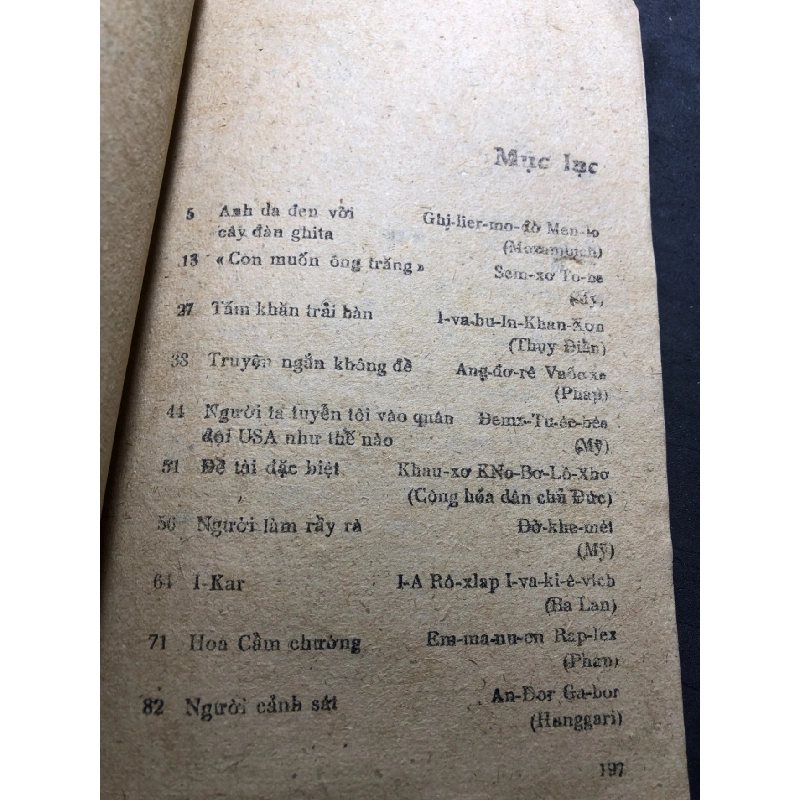 Mục lục
5 Anh da đen với Ghi-lier-mo-đờ Men-to
cây đàn ghita (Mozambich)
13 « Con muốn ông trăng » Sem-xơ To-be
(Mỹ)
27 Tấm khăn trải bàn I-va-bu-In-Khan-Xon
(Thụy Điển)
38 Truyện ngắn không đề Ang-đơ-rê
(Pháp)
44 Người ta tuyển tôi vào quân
đội USA như thế nào (Mỹ)
51 Đề tài đặc biệt Khau-xơ KNo-Bơ-Lô-Xhơ
(Cộng hóa dân chủ Đức)
56 Người làm rầy rà Đờ-khe-mét
(Mỹ)
64 I-Kar I-A Rô-xlap I-va-ki-ê-vich
(Ba Lan)
71 Hoa Cẩm chướng Em-ma-nu-en Rap-lex
(Phap)
82 Người cảnh sát An-Đor Ga-bor
(Hunggari)
197